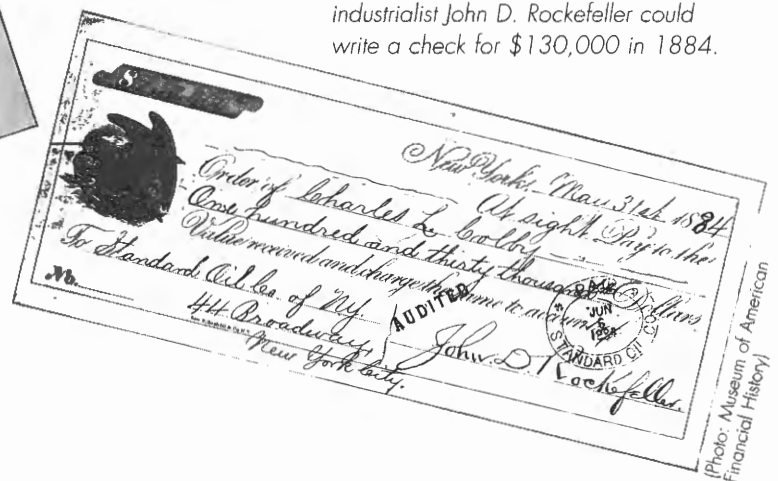 industrialist John D. Rockefeller could
write a check for $130,000 in 1884.
$
New York, May 31st 1884
At sight Pay to the
Order of Charles L. Colby
One hundred and thirty thousand Dollars
Value received and charge the same to account of
To Standard Oil Co. of NY.
No.
44 Broadway,
New York City.
AUDITED
PAID
JUN
6
1884
STANDARD OIL CO.
John D. Rockefeller.
(Photo: Museum of American
Financial History)